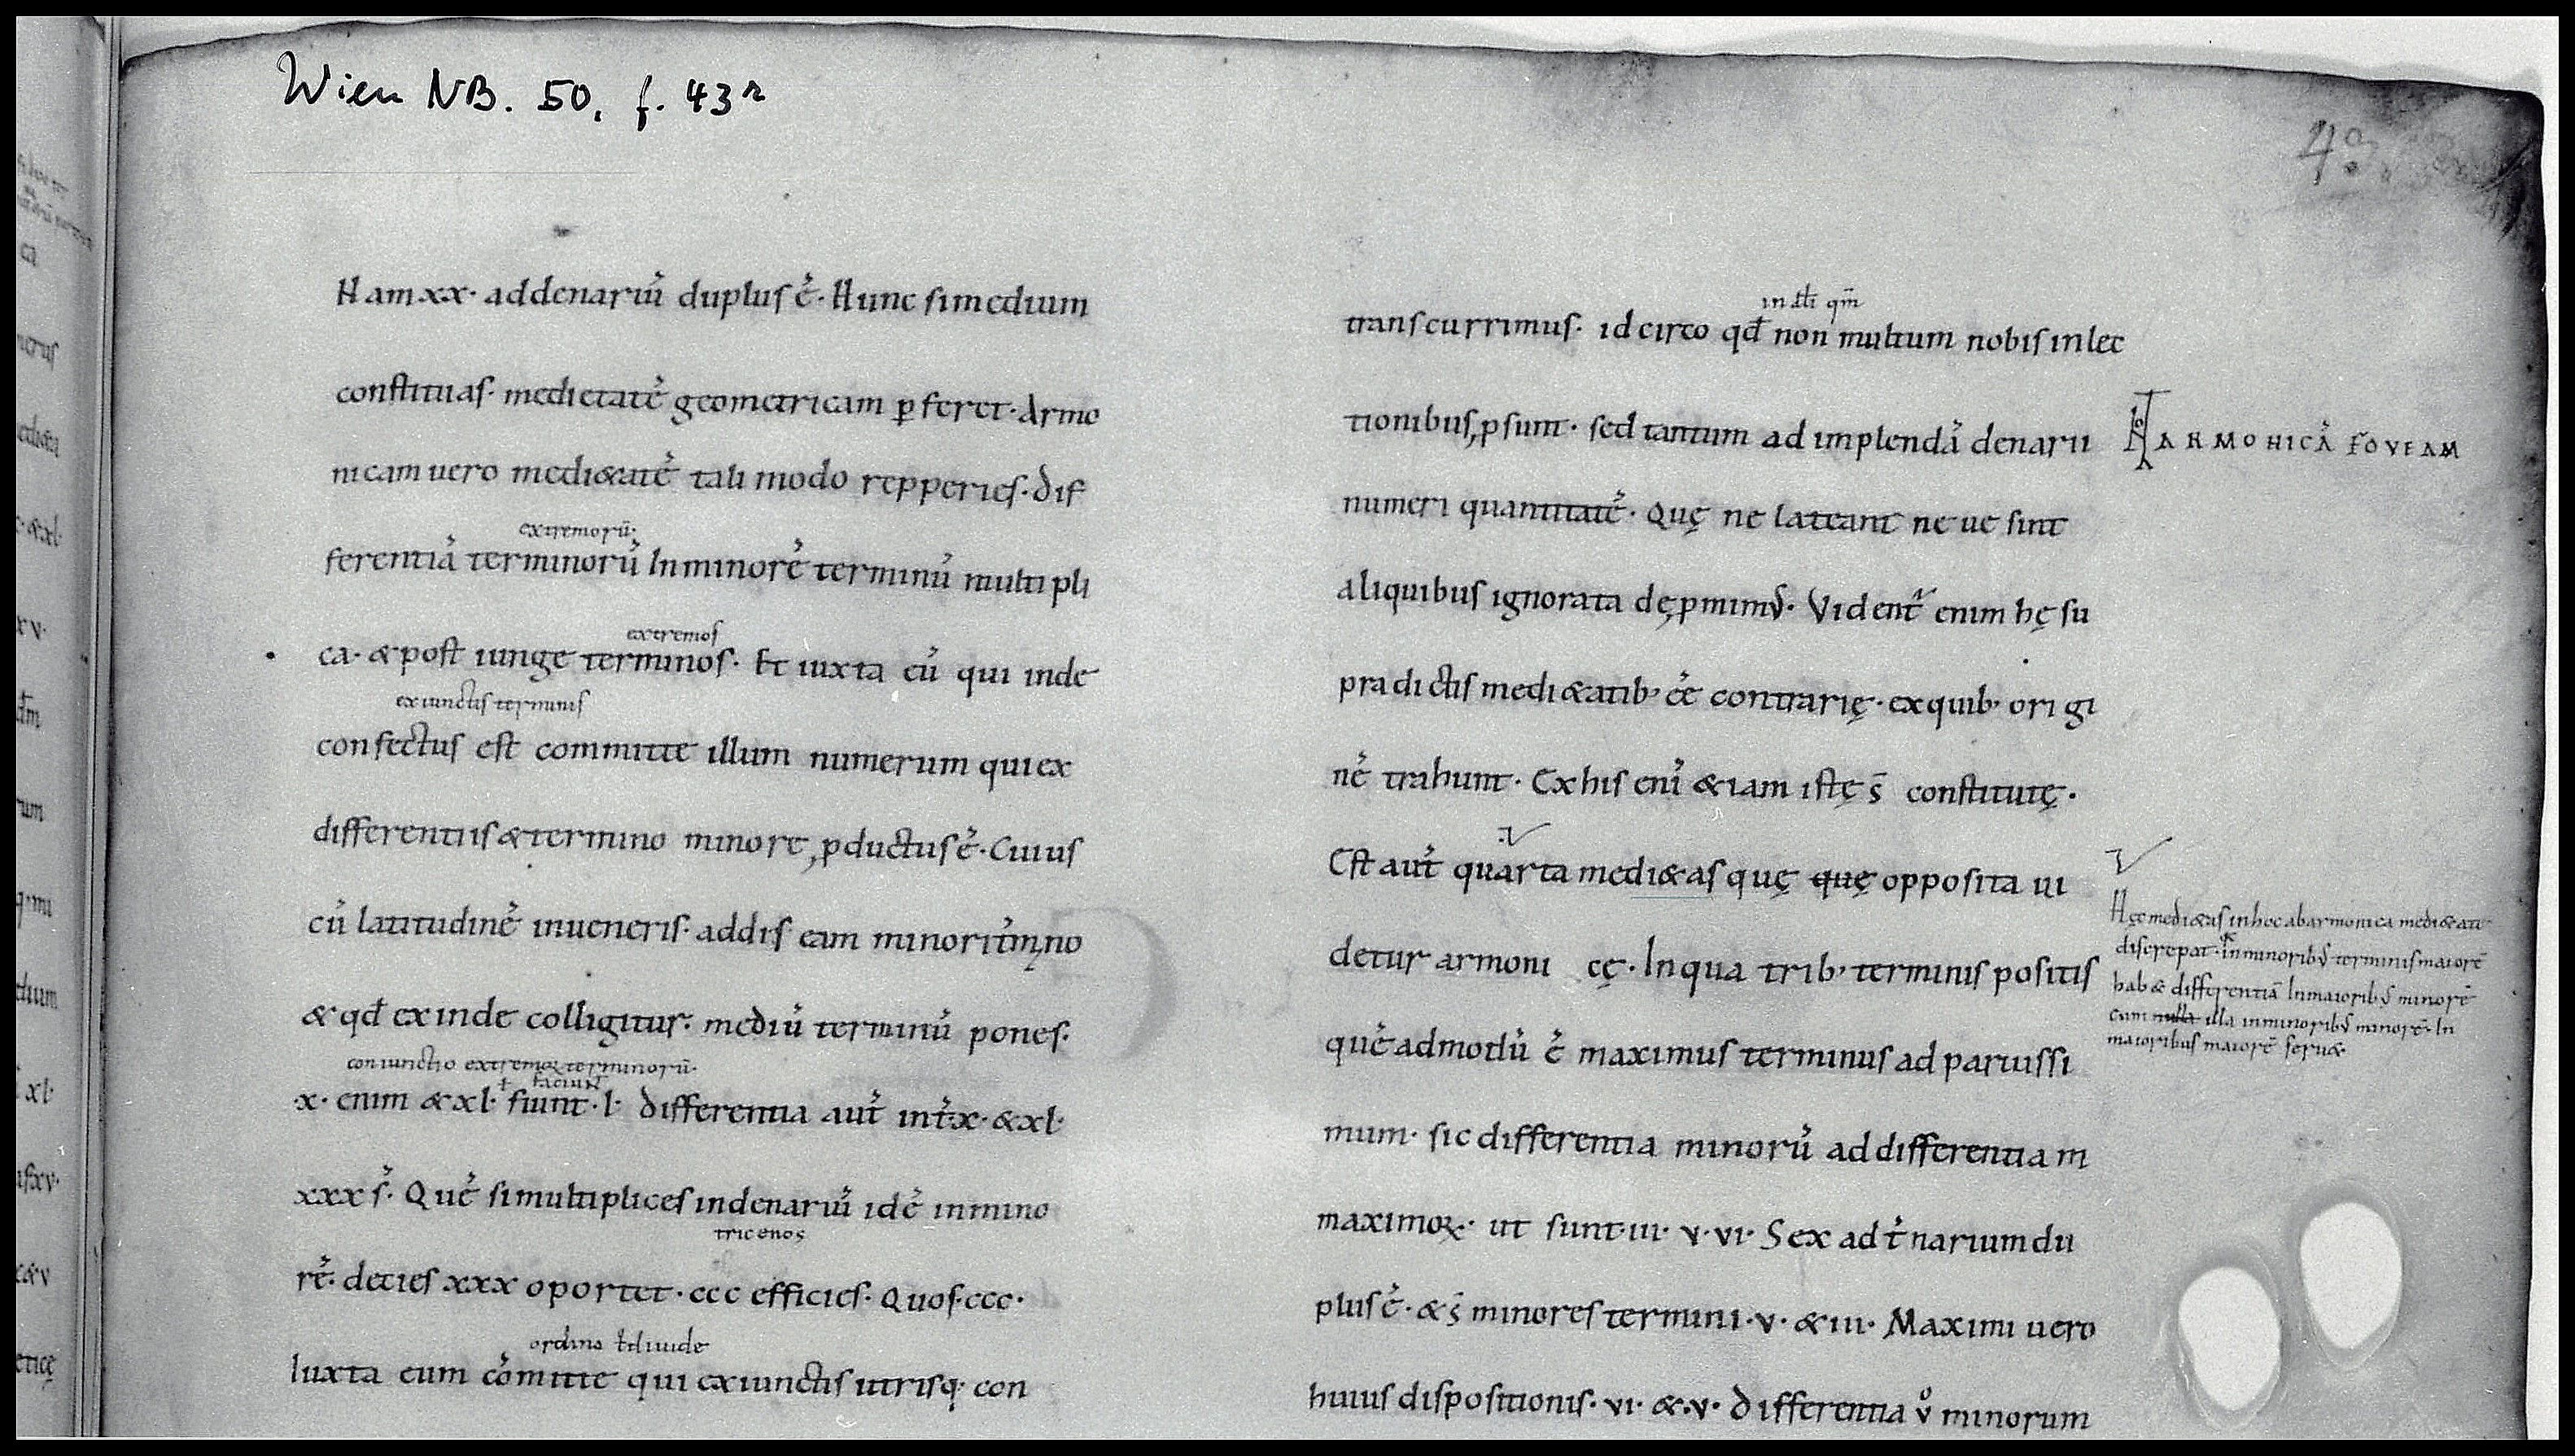 Wien NB. 50, f. 43r
43
Nam xx· ad denariũ duplus ē· Hunc si medium
constituas· medietatē geometricam ꝑferet· Armo
nicam uero medi&atē tali modo repperies· Dif
extremorū·
ferentiā terminorū In minorē terminū multipli
extremos
ca· & post iunge terminos· Et iuxta eū qui inde
ex iunctis terminis
confectus est committe illum numerum qui ex
differentiis & termino minore ꝓductus ē· Cuius
cū latitudinē inueneris· addis eam minori t̄mno
& qđ ex inde colligitur· mediū terminū pones·
coniunctio extremoꝝ terminorū·
ł faciunt
x· enim & xl· fiunt· l· Differentia aut̄ int̄ x· & xl·
xxx s̄· Quē si multiplices in denariū id ē in mino
tricenos
rē· decies xxx oportet· ccc efficies· Quos· ccc·
ordina ł diuide
Iuxta eum cōmitte qui ex iunctis utrisq· con
in ali qm̄
transcurrimus· idcirco qđ non multum nobis in lec
tionibus ꝓsunt· sed tantum ad implendā denarii
HARMONICĀ FOVEAM
numeri quantitatē· Quę ne lateant neue sint
aliquibus ignorata dępmimꝰ· Vident̄ enim hę su
pradictis medi&atib· ēē contrarię· ex quib· origi
nē trahunt· Ex his eni &iam istę s̄ constitutę·
Est aut̄ quarta medi&as quę quę opposita ui
detur armoni cę· In qua trib· terminis positis
quēadmodū ē maximus terminus ad paruissi
mum· sic differentia minorū ad differentiam
maximoꝝ· ut sunt· iii· v· vi· Sex ad t̄narium du
plus ē· & s̄ minores termini· v· & iii· Maximi uero
huius dispositionis· vi· & · v· Differentia v̊ minorum
Hęc medi&as in hoc ab armonica medi&ate
discrepat· in minoribꝰ terminis maiorē
hab& differentiā In maioribꝰ minorē
cum nulla illa in minoribꝰ minorē· In
maioribus maiorē seru&·